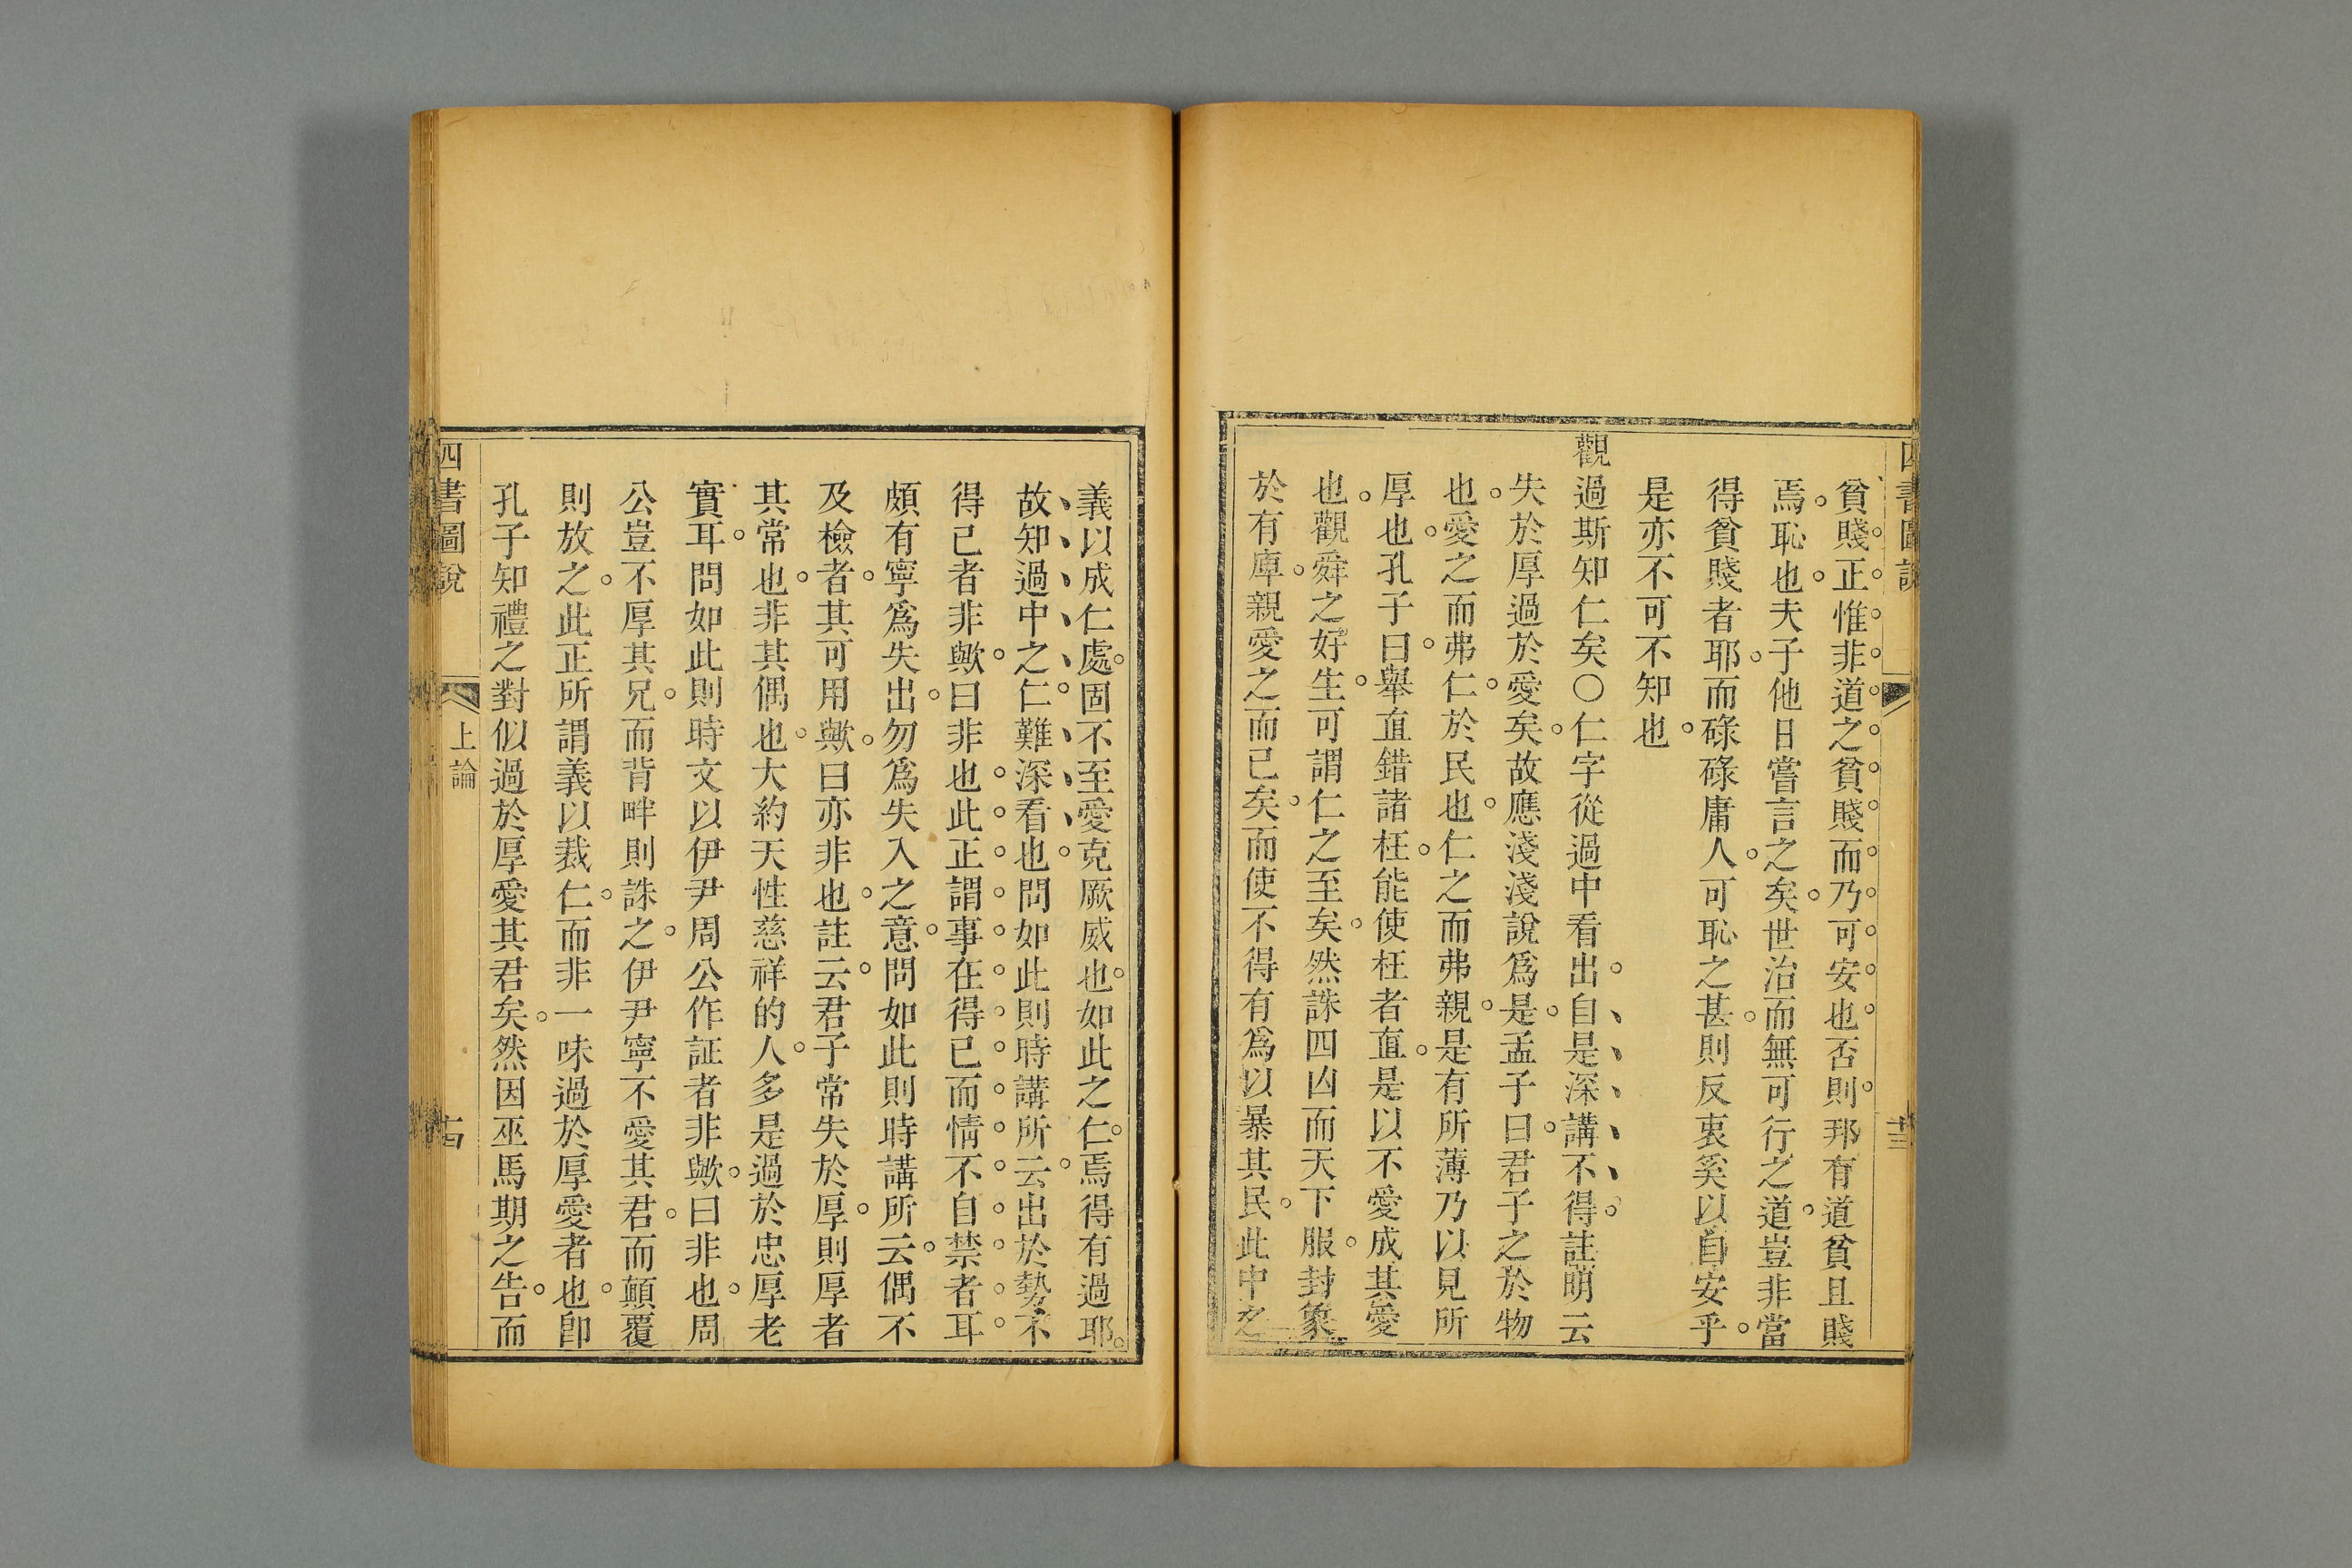 四書圖說
十三
貧賤正惟非道之貧賤而乃可安也否則邦有道貧且賤
焉恥也夫子他日嘗言之矣世治而無可行之道豈非當
得貧賤者耶而碌碌庸人可恥之甚則反衷奚以自安乎
是亦不可不知也
觀過斯知仁矣○仁字從過中看出自是深講不得註明云
失於厚過於愛矣故應淺淺說爲是孟子曰君子之於物
也愛之而弗仁於民也仁之而弗親是有所薄乃以見所
厚也孔子曰舉直錯諸枉能使枉者直是以不愛成其愛
也觀舜之好生可謂仁之至矣然誅四凶而天下服封象
於有庳親愛之而已矣而使不得有爲以暴其民此中之
義以成仁處固不至愛克厥威也如此之仁焉得有過耶
故知過中之仁難深看也問如此則時講所云出於勢不
得已者非歟曰非也此正謂事在得已而情不自禁者耳
頗有寧爲失出勿爲失入之意問如此則時講所云偶不
及檢者其可用歟曰亦非也註云君子常失於厚則厚者
其常也非其偶也大約天性慈祥的人多是過於忠厚老
實耳問如此則時文以伊尹周公作証者非歟曰非也周
公豈不厚其兄而背畔則誅之伊尹寧不愛其君而顛覆
則放之此正所謂義以裁仁而非一味過於厚愛者也卽
孔子知禮之對似過於厚愛其君矣然因巫馬期之告而
四書圖說
上論
十四